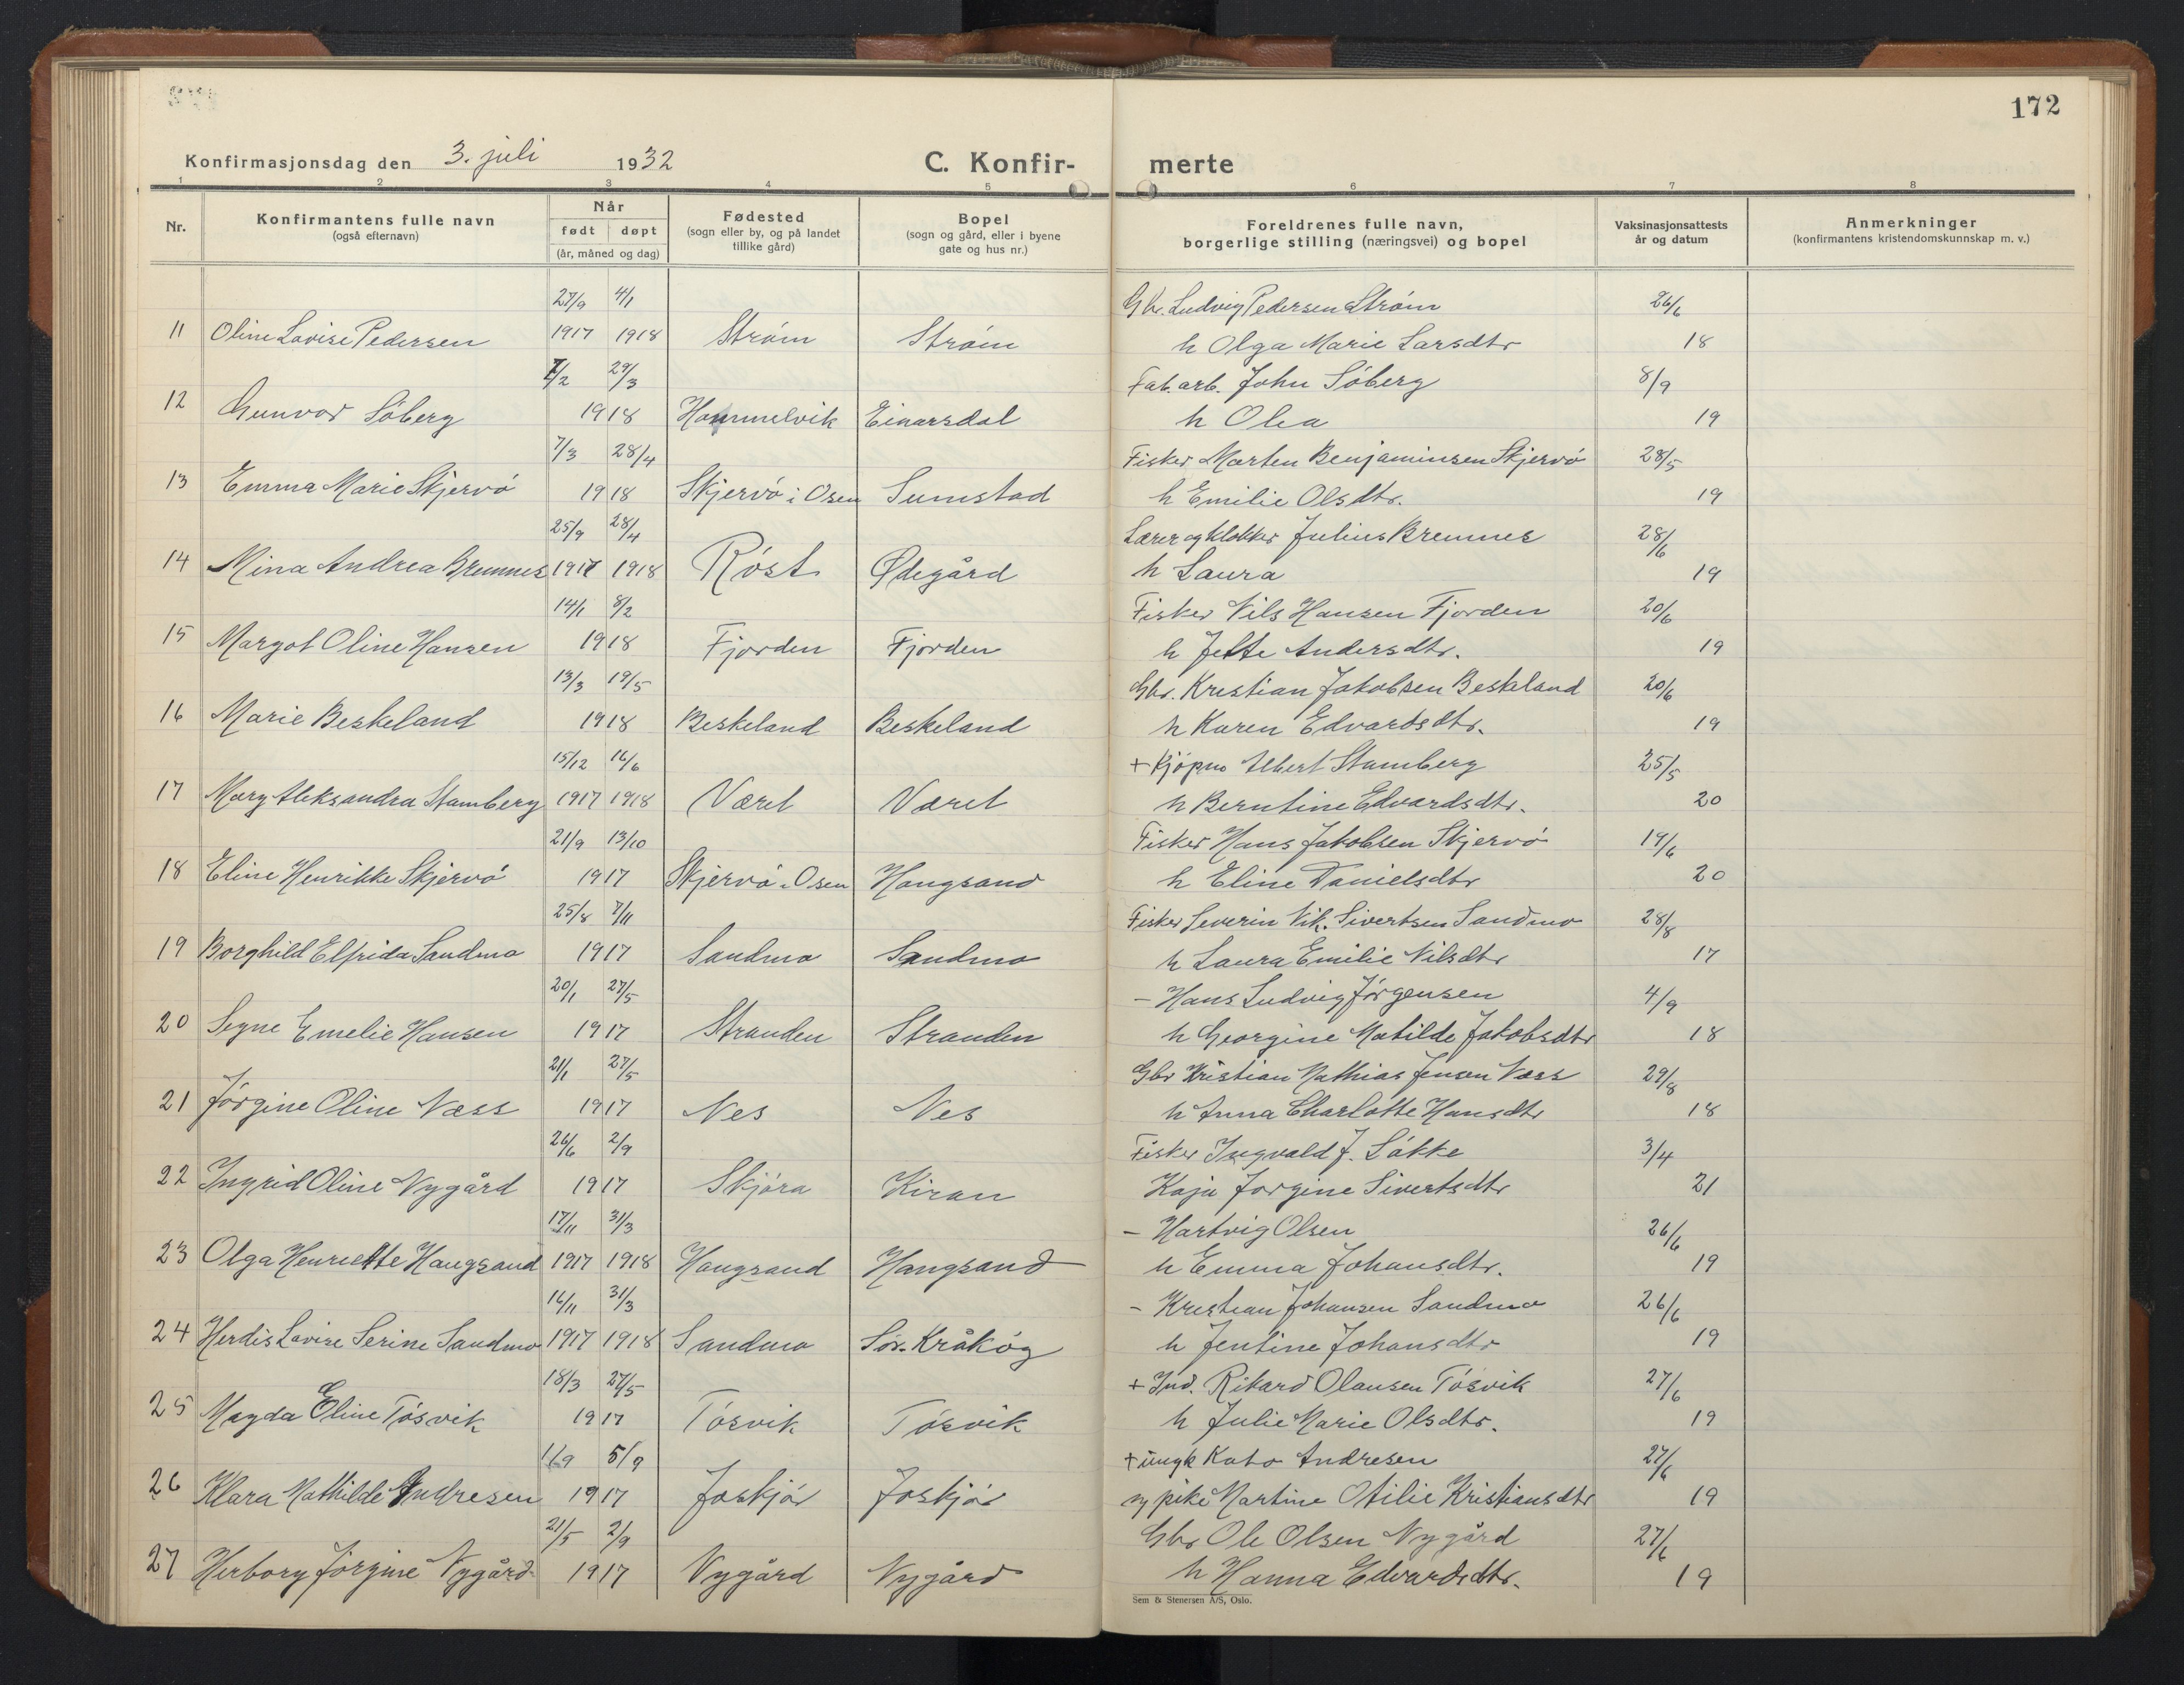 172
Konfirmasjonsdag den 3. juli 1932 C. Konfir- merte
1 2 3 4 5 6 7 8
Nr. Konfirmantens fulle navn (også efternavn) Når født døpt (år, måned og dag) Fødested (sogn eller by, og på landet tillike gård) Bopel (sogn og gård, eller i byene gate og hus nr.) Foreldrenes fulle navn, borgerlige stilling (næringsvei) og bopel Vaksinasjonsattests år og datum Anmerkninger (konfirmantens kristendomskunnskap m. v.)
27/9 4/1 Gbr. Ludvig Pedersen Strøm 26/6
11 Oline Lovise Pedersen 1917 1918 Strøm Strøm h Olga Marie Larsdtr 18
7/2 29/3 Fab. arb. John Söberg 8/9
12 Gunvor Söberg 1918 Hommelvik Einarsdal h Olea 19
7/3 28/4 Fisker Morten Benjaminsen Skjervö 28/5
13 Emma Marie Skjervö 1918 Skjervö i Osen Sumstad h Emilie Olsdtr. 19
25/9 28/4 Lærer og klokker Julius Bremnes 28/6
14 Mina Andrea Bremnes 1917 1918 Röst Ødegård h Laura 19
14/1 8/2 Fisker Nils Hansen Fjorden 20/6
15 Margot Oline Hansen 1918 Fjorden Fjorden h Jette Andersdtr. 19
13/3 19/5 Gbr. Kristian Jakobsen Beskeland 20/6
16 Marie Beskeland 1918 Beskeland Beskeland h Karen Edvardsdtr. 19
15/12 16/6 + Kjöpm Albert Stamberg 25/5
17 Mary Aleksandra Stamberg 1917 1918 Været Været h Berntine Edvardsdtr. 20
21/9 13/10 Fisker Hans Jakobsen Skjervö 19/6
18 Eline Henrikke Skjervö 1917 Skjervö i Osen Hongsand h Eline Danielsdtr 20
25/8 7/11 Fisker Severin Nik. Sivertsen Sandmo 28/8
19 Borghild Elfrida Sandmo 1917 Sandmo Sandmo h Laura Emilie Nilsdtr 17
20/1 27/5 - Hans Ludvig Jörgensen 4/9
20 Segne Emelie Hansen 1917 Stranden Stranden h Georgine Matilde Jakobsdtr 18
21/1 27/5 Gbr Kristian Mathias Jensen Næss 29/8
21 Jörgine Oline Næss 1917 Nes Nes h Anna Charlotte Hansdtr 18
26/6 2/9 Fisker Ingvald J. Lökke 3/4
22 Ingrid Oline Nygård 1917 Skjöra Kiran Kaja Jorgine Sivertsdtr 21
17/11 31/3 - Hartvig Olsen 26/6
23 Olga Henriette Haugsand 1917 1918 Haugsand Haugsand h Emma Johansdtr. 19
16/11 31/3 - Kristian Johansen Sandmo 26/6
24 Herdis Lovise Serine Sandmo 1917 1918 Sandmo Sör-Kråköy h Jentine Johansdtr 19
18/3 27/5 + Ind. Rikard Olausen Tösvik 27/6
25 Magda Eline Tösvik 1917 Tösvik Tösvik h Julie Marie Olsdtr. 19
1/9 5/9 + ungk Kato Andresen 27/6
26 Klara Mathilde Andresen 1917 Joskjör Joskjör og pike Martine Otilie Kristiansdtr 19
21/5 2/9 Gbr Ole Olsen Nygård 27/6
27 Herborg Jörgine Nygård 1917 Nygård Nygård h Hanna Edvardsdtr. 19
Sem & Stenersen A/S, Oslo.